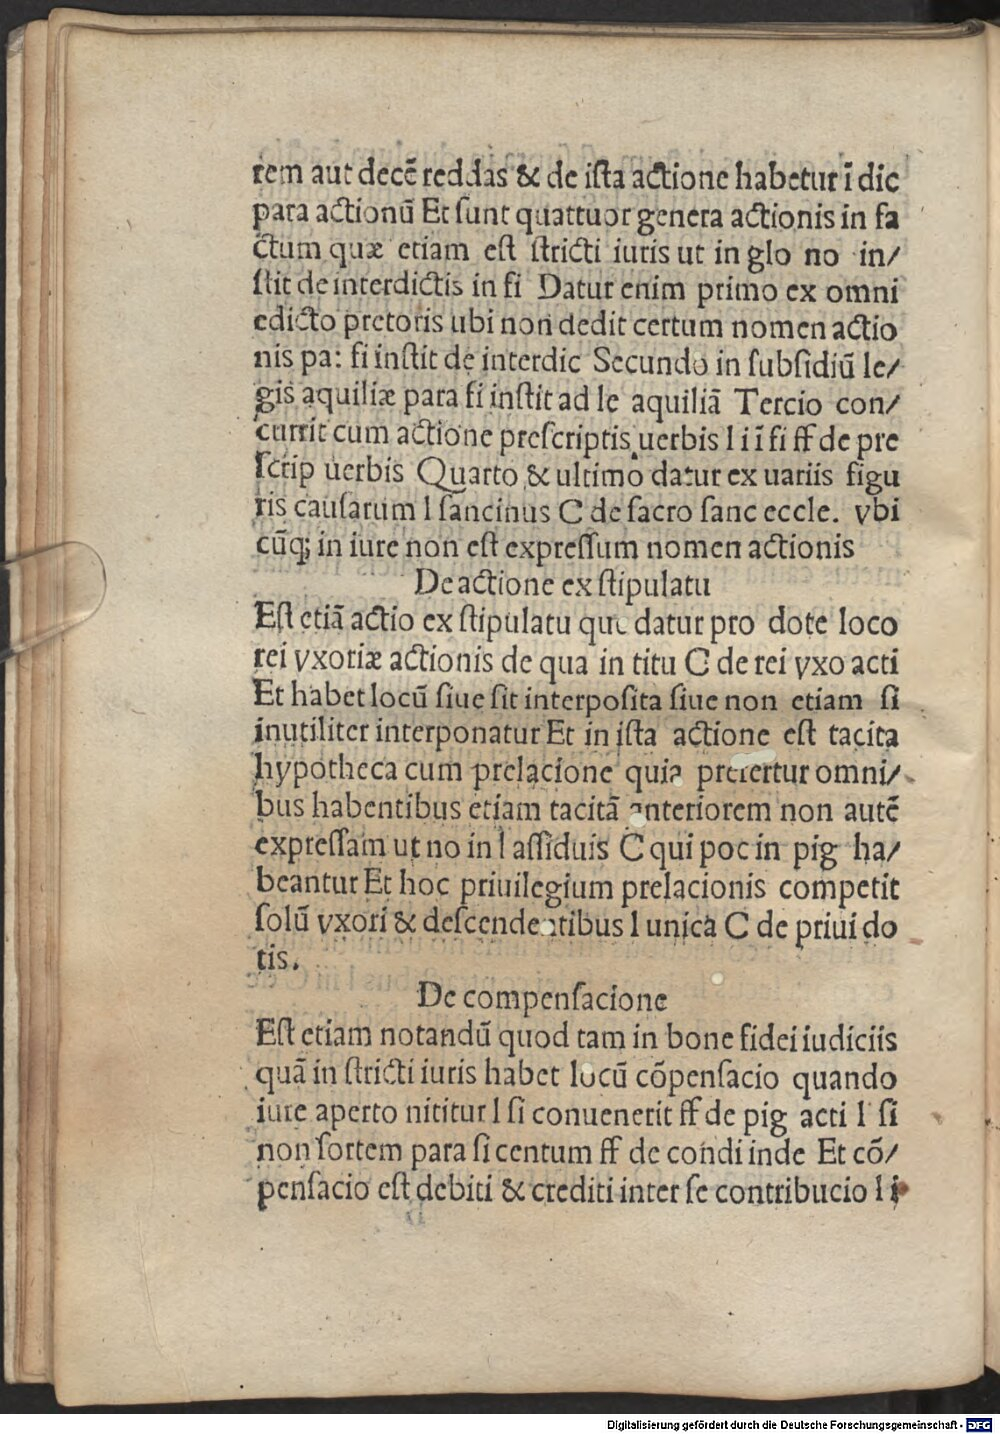 rem aut decē reddas & de iſta actione habetur ī dic
para actionū Et ſunt quattuor genera actionis in fa
ctum quæ etiam eſt ſtricti iuris ut in glo no in/
ſtit de interdictis in fi Datur enim primo ex omni
edicto pretoris ubi non dedit certum nomen actio
nis pa: fi inſtit de interdic Secundo in ſubſidiū le/
gis aquiliæ para fi inſtit ad le aquiliā Tercio con/
currit cum actione preſcriptis uerbis l i ī fi ff de pre
ſcrip uerbis Quarto & ultimo datur ex uariis figu
ris cauſarum l ſancinus C de ſacro ſanc eccle. vbi
cūq; in iure non eſt expreſſum nomen actionis
De actione ex ſtipulatu
Eſt etiā actio ex ſtipulatu que datur pro dote loco
rei vxoriæ actionis de qua in titu C de rei vxo acti
Et habet locū ſiue ſit interpoſita ſiue non etiam ſi
inutiliter interponatur Et in iſta actione eſt tacita
hypotheca cum prelacione quia prefertur omni/
bus habentibus etiam tacitā anteriorem non autē
expreſſam ut no in l aſſiduis C qui poc in pig ha/
beantur Et hoc priuilegium prelacionis competit
ſolū vxori & deſcendentibus l unica C de priui do
tis.
De compenſacione
Eſt etiam notandū quod tam in bone fidei iudiciis
quā in ſtricti iuris habet locū cōpenſacio quando
iure aperto nititur l ſi conuenerit ff de pig acti l ſi
non ſortem para ſi centum ff de condi inde Et cō/
penſacio eſt debiti & crediti inter ſe contribucio l i
Digitalisierung gefördert durch die Deutsche Forschungsgemeinschaft - DFG